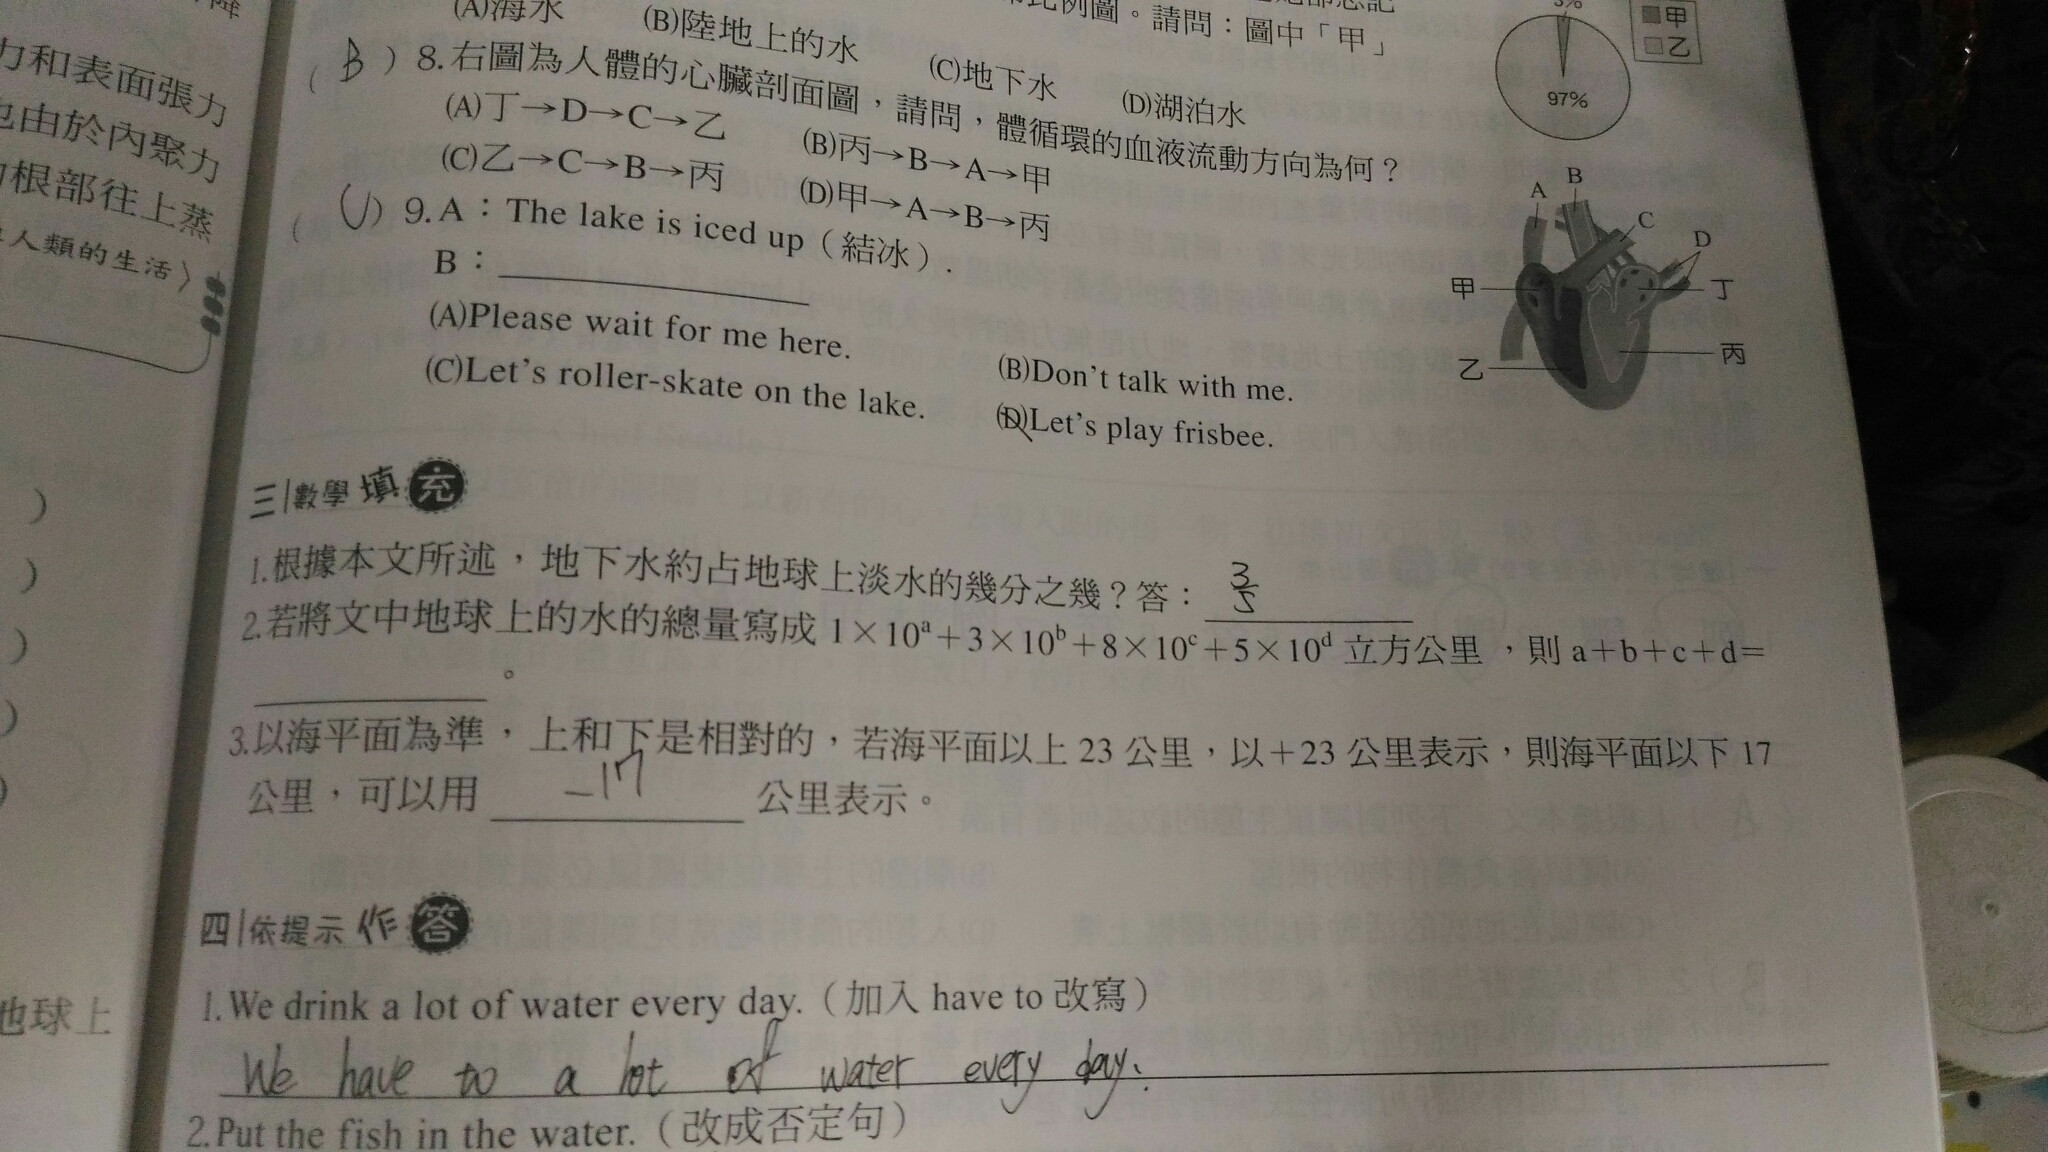 力和表面張力
也由於內聚力
根部往上蒸
人類的生活〉
地球上
(A)海水
(B)陸地上的水
(C)地下水
(D)湖泊水
比例圖。請問：圖中「甲」
3%
97%
甲
乙
( B ) 8.右圖為人體的心臟剖面圖，請問，體循環的血液流動方向為何？
(A)丁→D→C→乙
(B)丙→B→A→甲
(C)乙→C→B→丙
(D)甲→A→B→丙
A
B
C
D
甲
乙
丙
丁
9.A：The lake is iced up（結冰）.
B：
(A)Please wait for me here.
(B)Don't talk with me.
(C)Let's roller-skate on the lake.
(D)Let's play frisbee.
三 數學填充
1.根據本文所述，地下水約占地球上淡水的幾分之幾？答： 3/5
2.若將文中地球上的水的總量寫成 1×10ᵃ＋3×10ᵇ＋8×10ᶜ＋5×10ᵈ 立方公里，則 a＋b＋c＋d＝
。
3.以海平面為準，上和下是相對的，若海平面以上 23 公里，以＋23 公里表示，則海平面以下 17
公里，可以用 -17 公里表示。
四 依提示作答
1.We drink a lot of water every day.（加入 have to 改寫）
We have to a lot of water every day.
2.Put the fish in the water.（改成否定句）